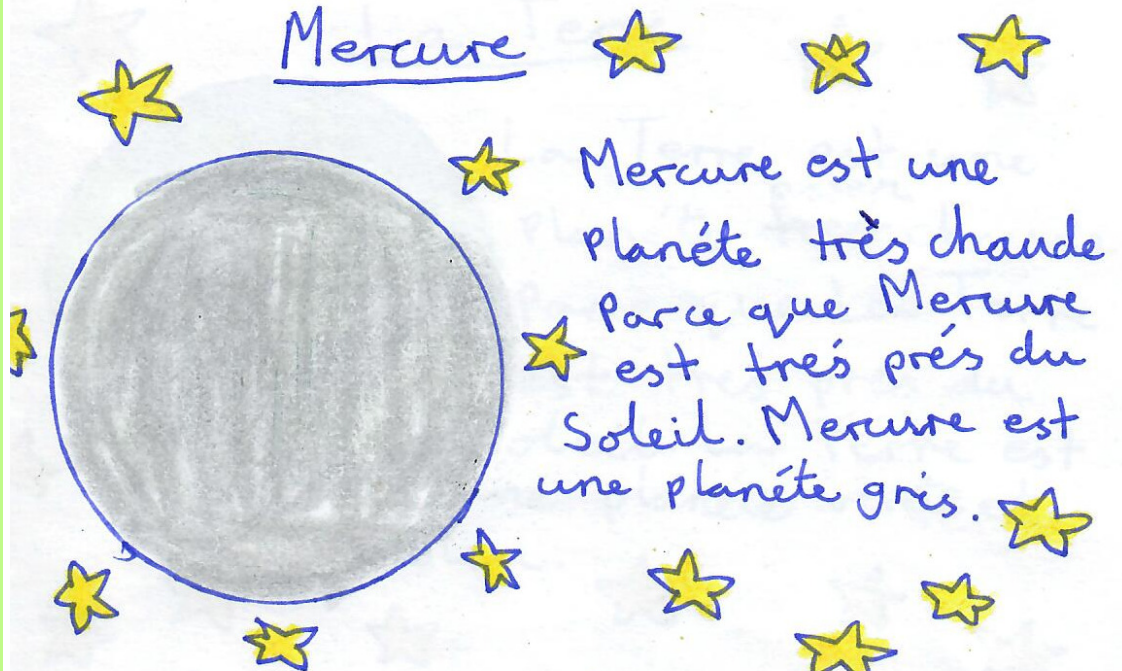 Mercure
Mercure est une
Planéte très chaude
Parce que Mercure
est trés prés du
Soleil. Mercure est
une planéte gris.